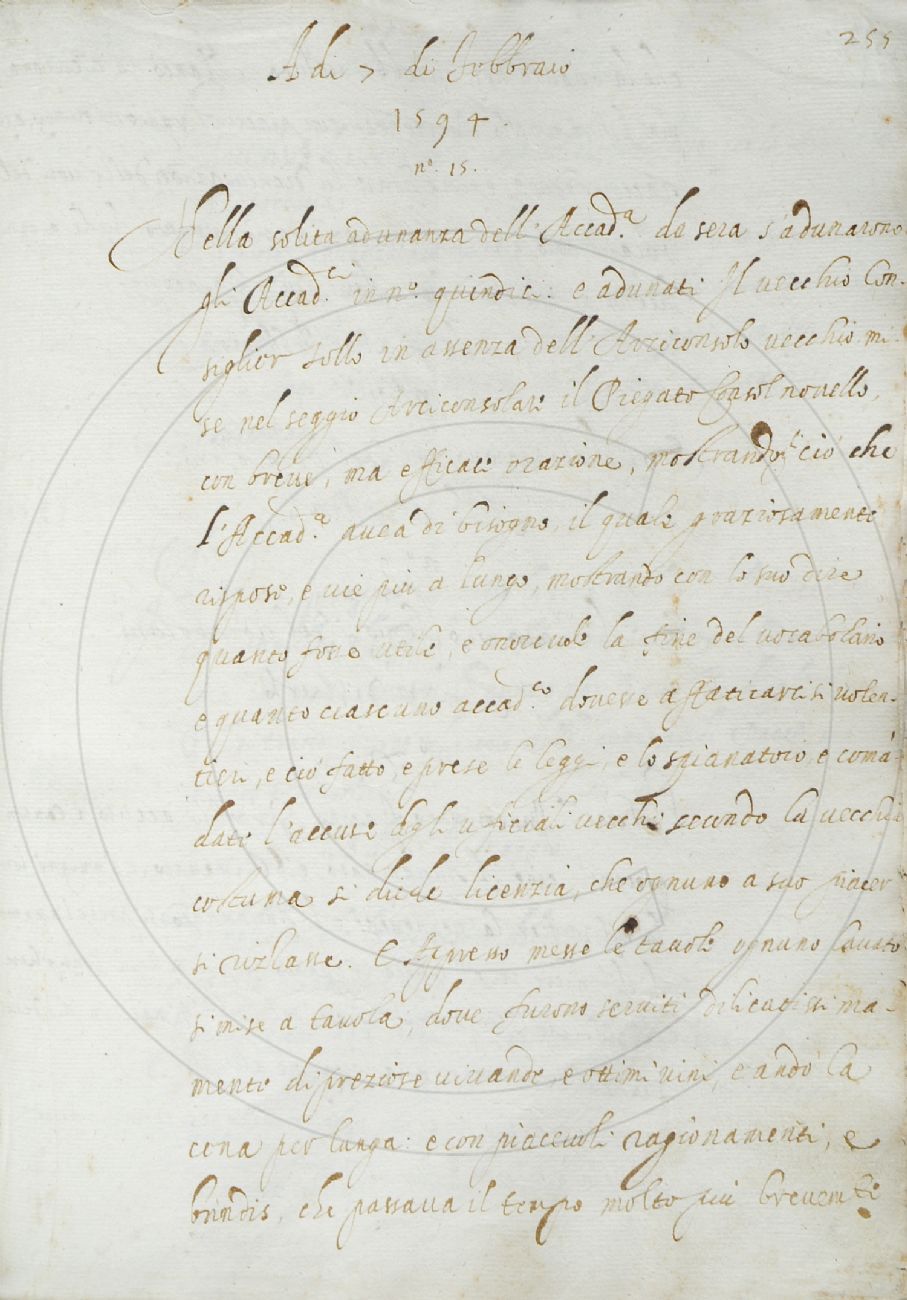 255
A di 7 di Febbraio
1594.
n.º 15.
Nella solita adunanza dell'Accad.ª da sera s'adunarono
gli Accad.ci in n.º quindici: e adunati Il vecchio Con-
siglier Sollo in assenza dell'Arciconsolo vecchio mi-
se nel seggio Arciconsolare il Piegato Consol novello,
con breve, ma efficace orazione, mostrandoli ciò che
l'Accad.ª avea di bisogno, il quale graziosamente
rispose, e vie più a lungo, mostrando con lo suo dire
quanto fosse utile, e onorevole la fine del vocabolario
e quanto ciascuno accad.co dovesse affaticarcisi volen-
tieri, e ciò fatto, e prese le leggi, e lo spianatoio, e comā-
date l'accuse degli uficiali vecchi secondo la vecchia
costuma si diede licenzia, che ognuno a suo piacer
si rizzasse. E Appresso messe le tavole ognuno lavato
si mise a tavola, dove furono serviti dilicatissima-
mente di preziose vivande, e ottimi vini, e andò la
cena per lunga: e con piacevoli ragionamenti, e
brindis, che passava il tempo molto più brevem.te